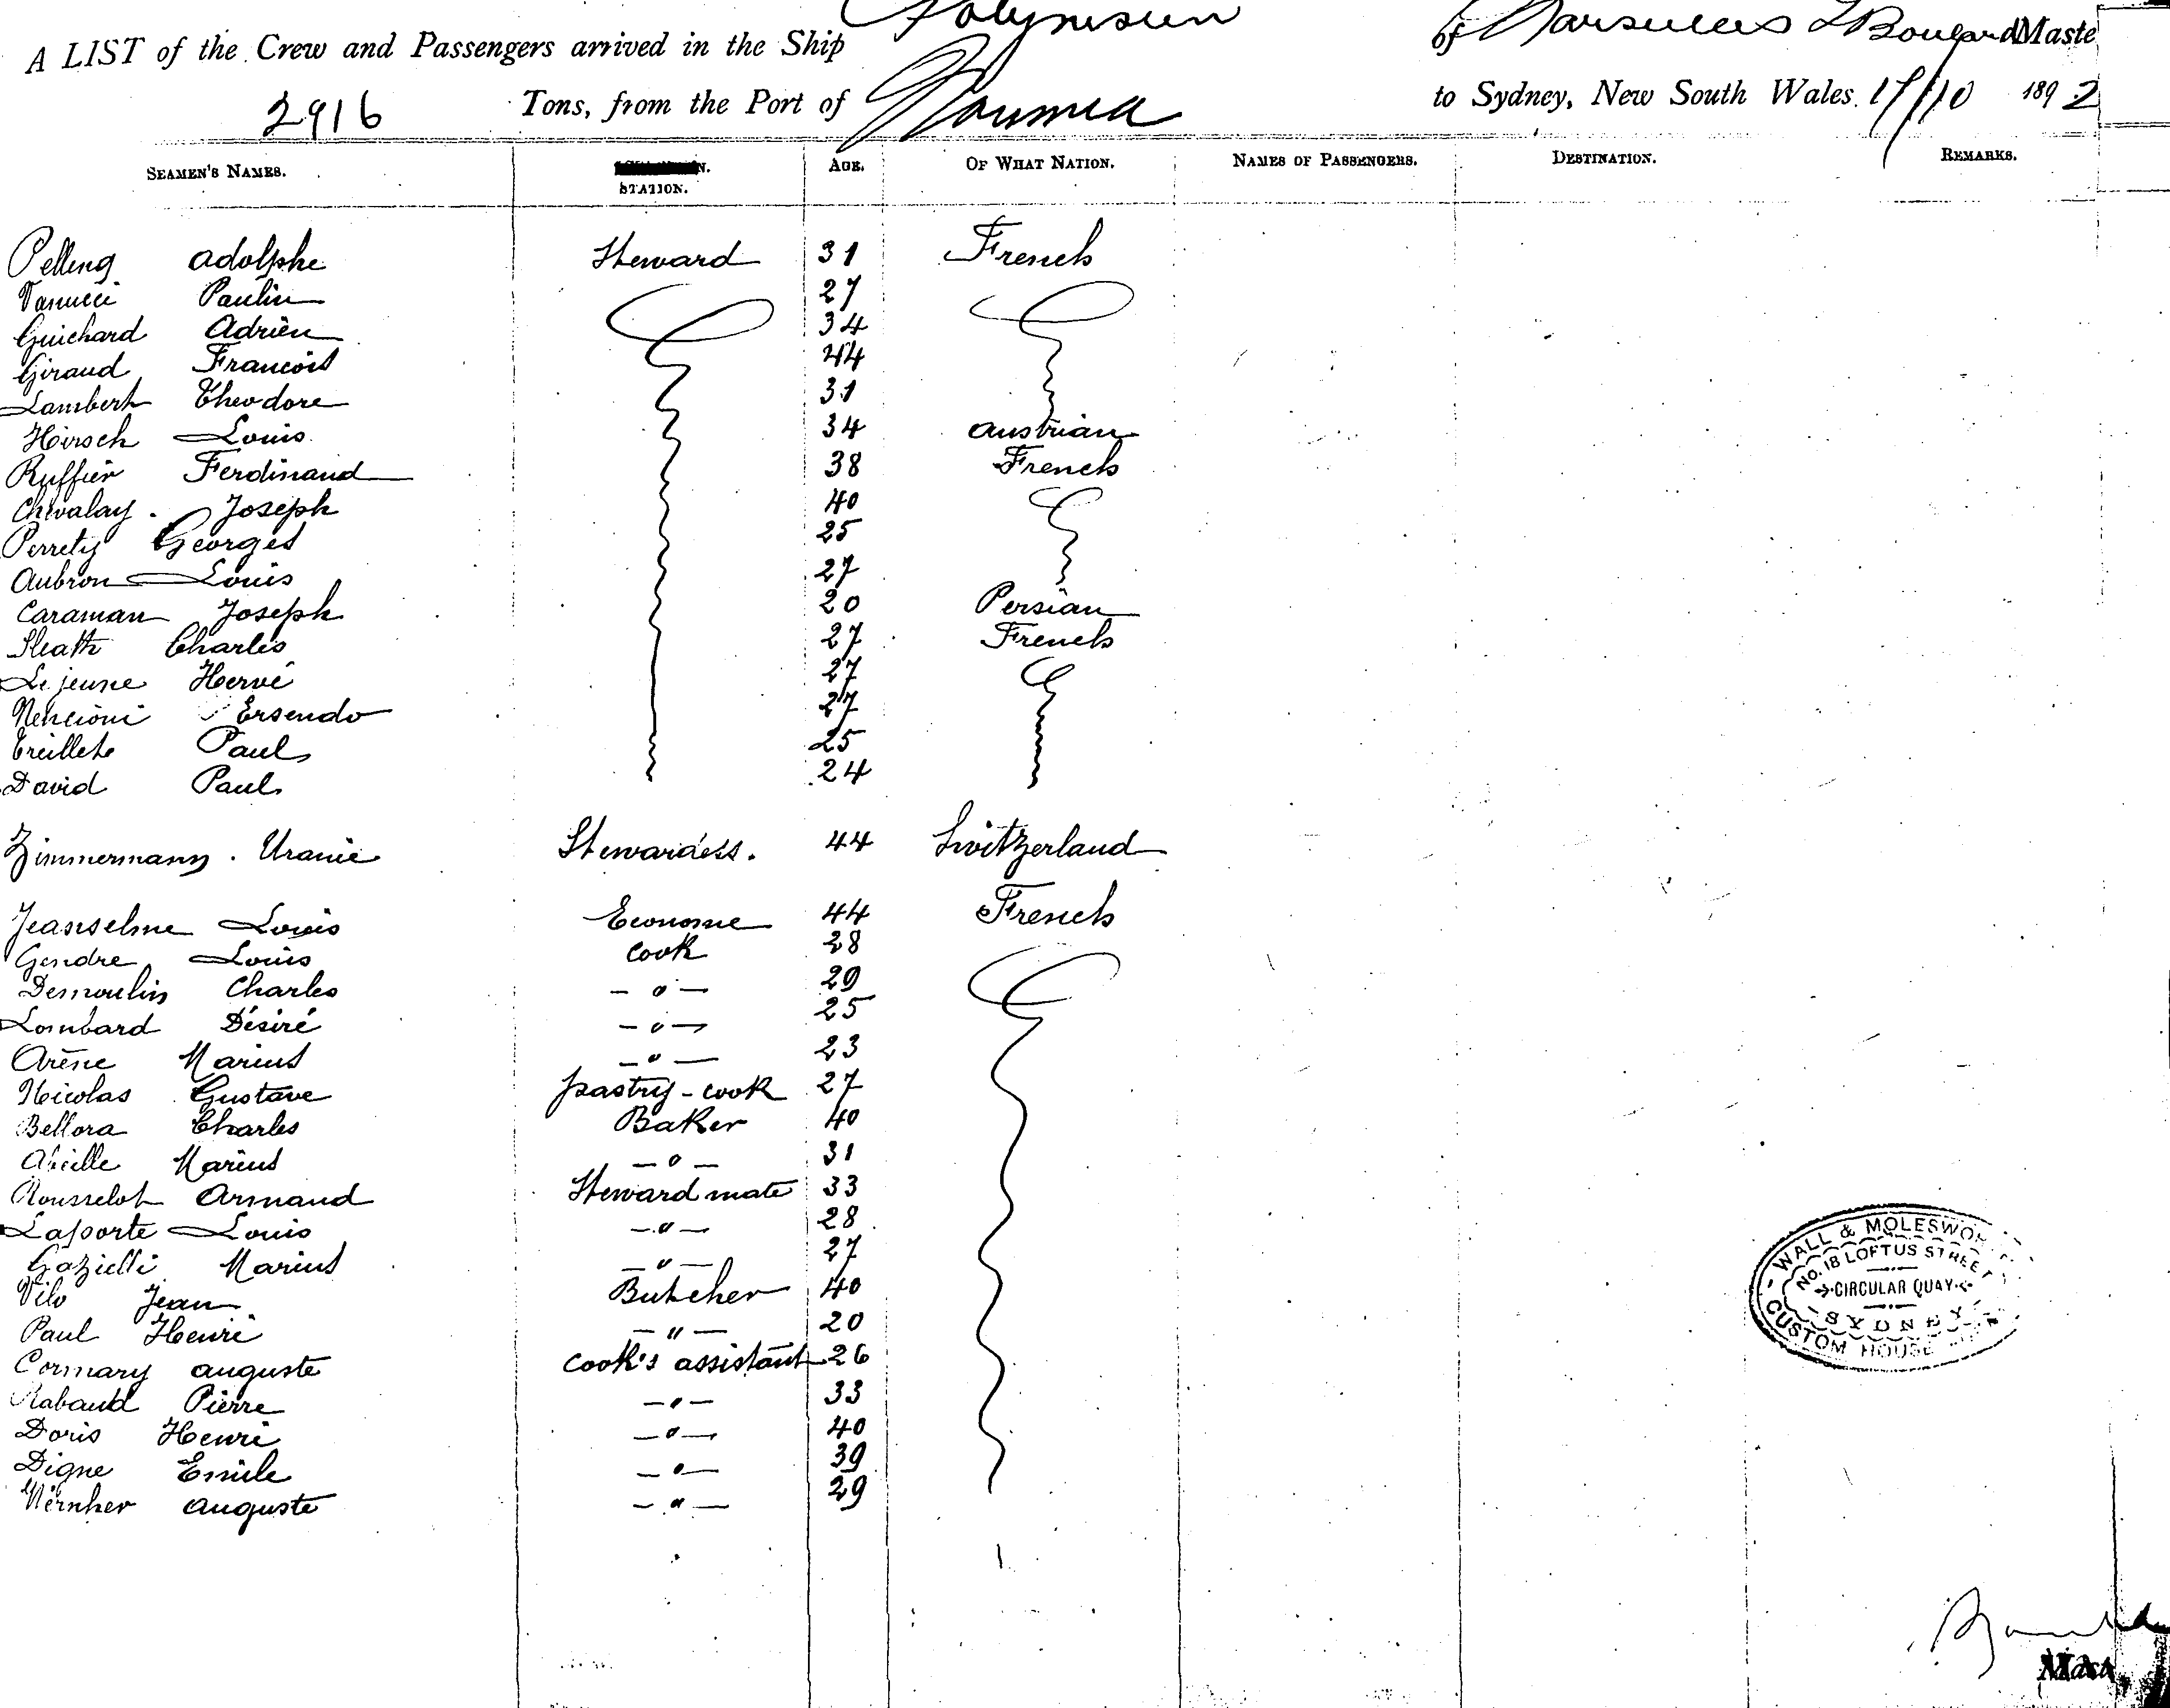 A LIST of the Crew and Passengers arrived in the Ship Polynesien of Marseilles Boulard Maste
2916 Tons, from the Port of Noumea to Sydney, New South Wales. 17/10 1892
SEAMEN'S NAMES. STATION. AGE. OF WHAT NATION. NAMES OF PASSENGERS. DESTINATION. REMARKS.
Pelleng Adolphe Steward 31 French
Vanucci Paulin 27
Guichard Adrien 34
Giraud Francois 44
Lambert Theodore 31
Hirsch Louis 34 Austrian
Ruffier Ferdinand 38 French
Chevalay Joseph 40
Perrety Georges 25
Aubron Louis 27
Caraman Joseph 20 Persian
Sleath Charles 27 French
Lejeune Hervé 27
Nencioni Ersendo 27
Treillet Paul 25
David Paul 24
Zimmermann. Uranie Stewardess. 44 Switzerland
Jeanselme Louis Econome 44 French
Gendre Louis cook 28
Demoulin Charles - " - 29
Lombard Désiré - " - 25
Arène Marius - " - 23
Nicolas Gustave pastry-cook 27
Bellora Charles Baker 40
Abeille Marius - " - 31
Rousselot Armand Steward mate 33
Laporte Louis - " - 28
Gazielli Marius - " - 27
Vilo Jean Butcher 40
Paul Henri - " - 20
Cormary auguste cook's assistant 26
Rabaud Pierre - " - 33
Doris Henri - " - 40
Digne Emile - " - 39
Wernher auguste - " - 29
WALL & MOLESWO
NO. 18 LOFTUS STREET
CIRCULAR QUAY
SYDNEY
CUSTOM HOUSE